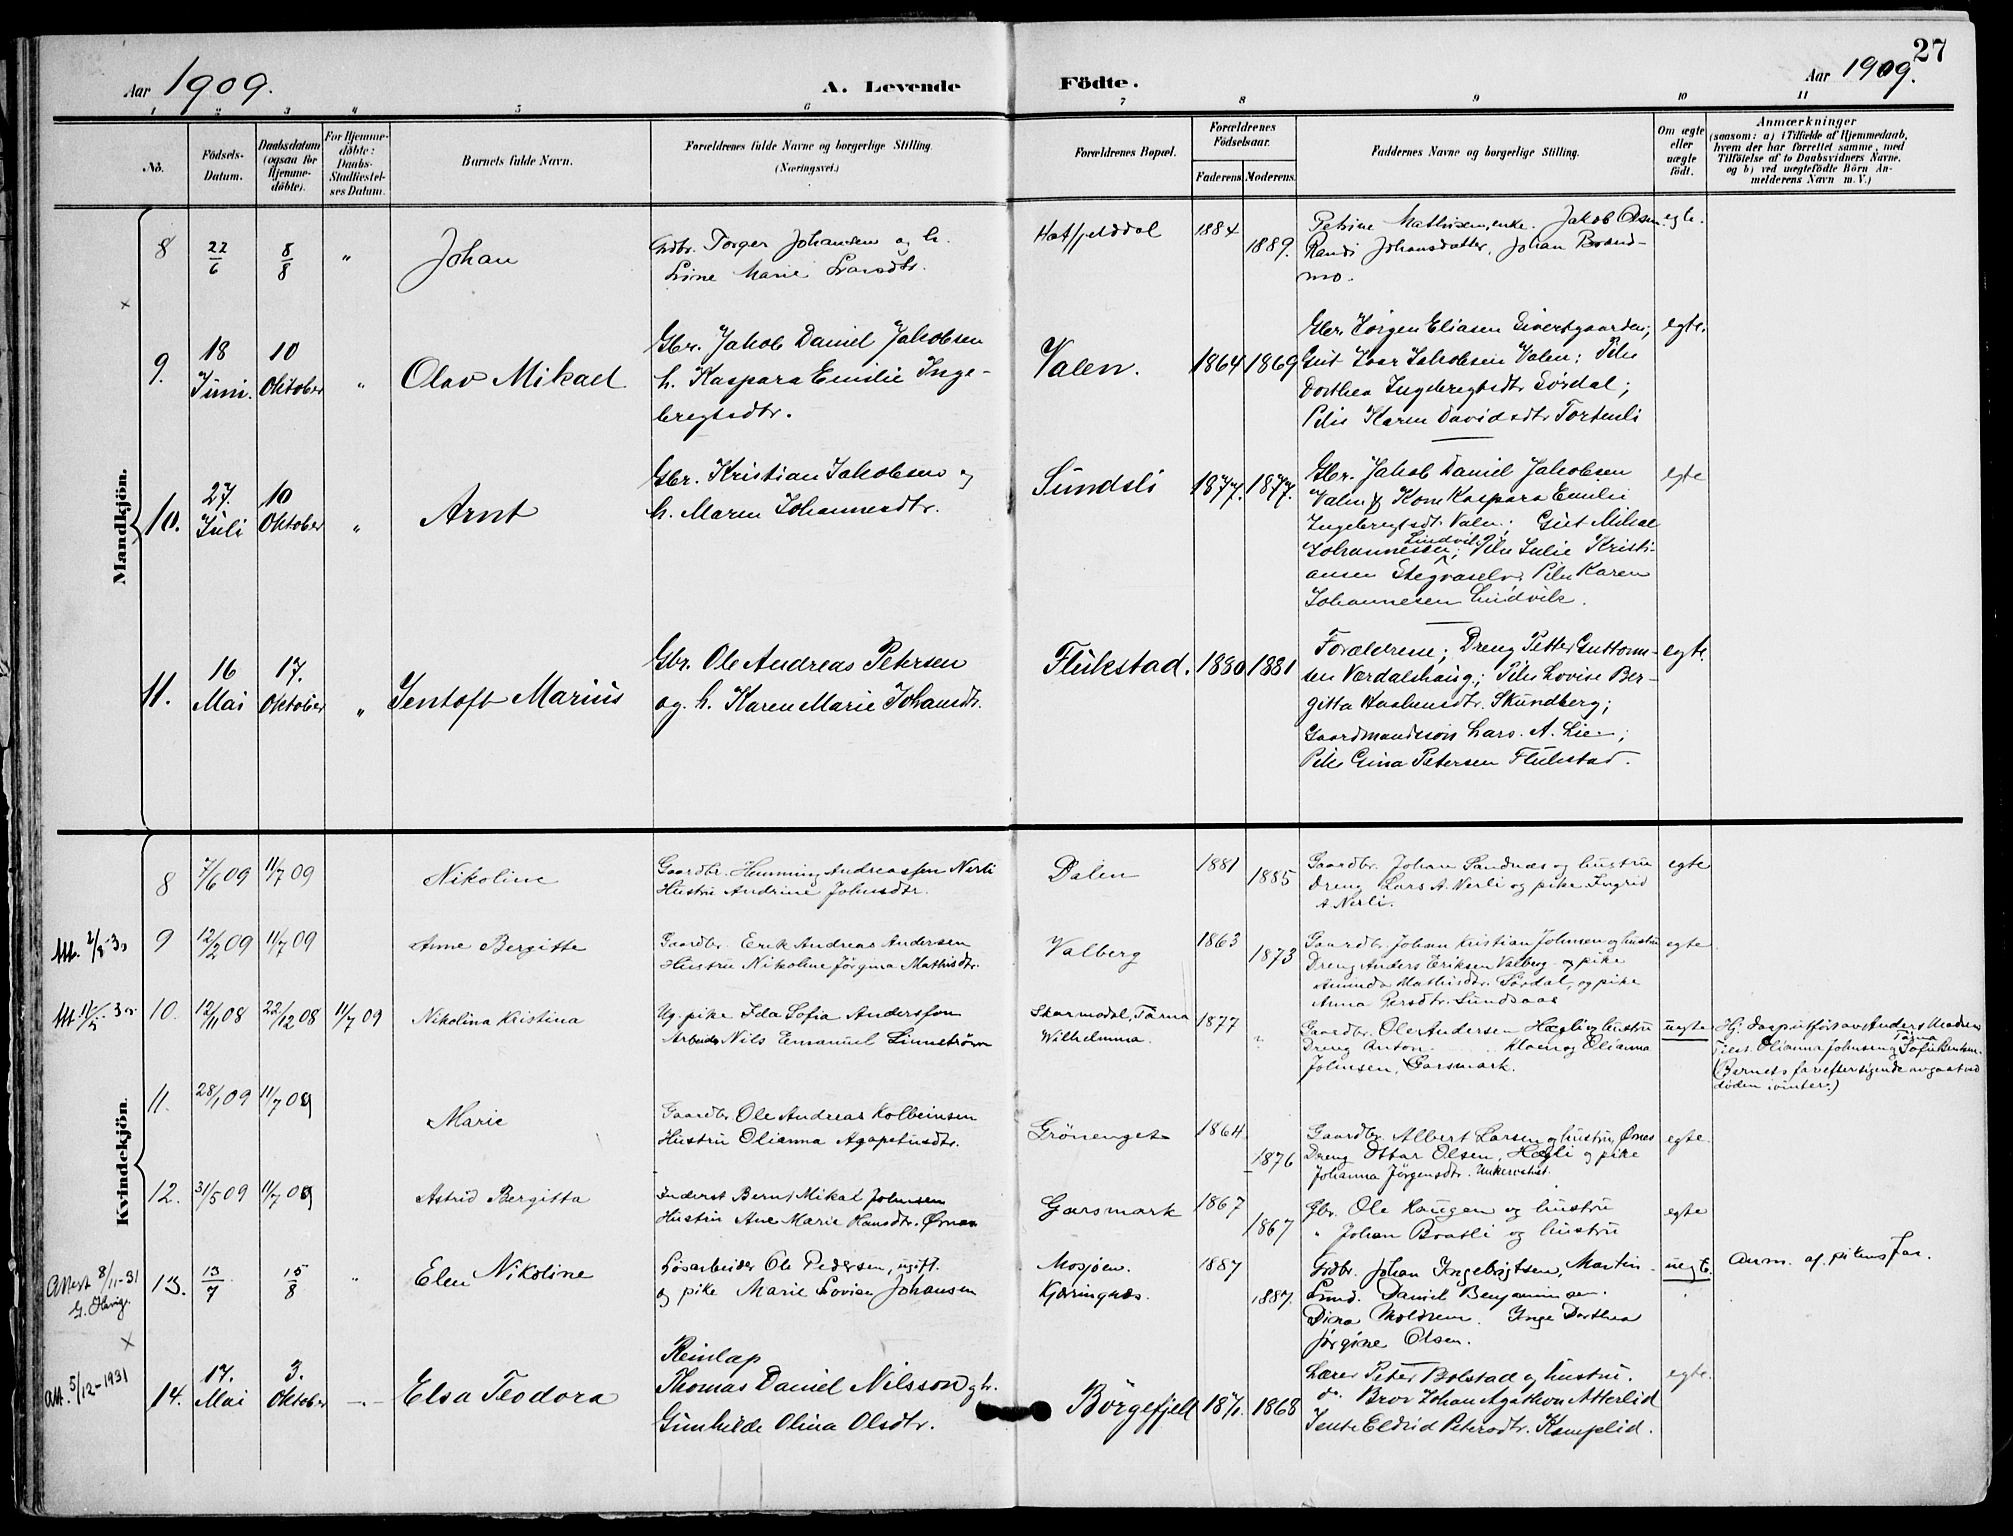 27
Aar 1909. A. Levende Födte. Aar 1909.
1 2 3 4 5 6 7 8 9 10 11
No.
Födsels-Datum.
Daabsdatum (ogsaa for Hjemme-döbte).
For Hjemme-döbte: Daabs-Stadfæstel-ses Datum.
Barnets fulde Navn.
Forældrenes fulde Navne og borgerlige Stilling.
(Næringsvei.)
Forældrenes Bopæl.
Forældrenes Födselsaar.
Faderens. Moderens.
Faddernes Navne og borgerlige Stilling.
Om ægte eller uægte födt.
Anmærkninger
(saasom: a) i Tilfælde af Hjemmedaab,
hvem der har forrettet samme, med
Tilföielse af to Daabsvidners Navne,
og b) ved uægtefödte Börn An-
melderens Navn m. V.)
Mandkjön.
8 22/6 8/8 " Johan
Grdbr. Torger Johansen og h.
Line Marie Larsdtr.
Hatfjelddal 1884 1889.
Petrine Mathisen, enke. Jakob Olsen
Randi Johansdatter, Johan Brand-
mo.
egte.
9. 18 Juni. 10 Oktober " Olav Mikael
Gbr. Jakob Daniel Jakobsen
h. Kaspara Emilie Inge-
bregtsdtr.
Valen. 1864 1869
Gbr. Jörgen Eliasen Sivertgaarden;
Gut Ivar Jakobsen Valen; Pike
Dorthea Ingebregtsdtr Sördal;
Pike Karen Davidsdtr Tortenli
egte.
10. 27. Juli 10 Oktober " Arnt
Gbr. Kristian Jakobsen og
h. Maren Johannesdtr.
Sundsli 1877. 1877.
Gbr. Jakob Daniel Jakobsen
Valen & Kone Kaspara Emilie
Ingebregtsdt. Valen; Gut Mikal
Johannesen Lindvik; Pike Julie Kristi-
ansen Stegvaselv. Pike Karen
Johannesen Lindvik.
egte
11. 16 Mai 17. Oktober " Jentoft Marius
Gbr. Ole Andreas Petersen
og h. Karen Marie Johansdtr.
Flukstad. 1880 1881
Forældrene; Dreng Petter Guttorm-
sen Værdalshaug; Pike Lovise Ber-
gitta Skundberg;
Gaardmandssön Lars A. Lie;
Pike Gina Petersen Flukstad.
egte.
Kvindekjön.
8 7/6 09 11/7 09 Nikoline
Gaardbr. Henning Andreassen Nerli
Hustru Andrine Johnsdtr.
Dalen 1881 1885
Gaardbr. Johan Sandnæs og hustru
Dreng Lars A. Nerli og pike Ingrid
A. Nerli.
egte
Att. 2/8-30
9 12/2 09 11/7 09 Anne Bergitte
Gaardbr. Erik Andreas Andersen
Hustru Nikoline Jörgina Mathisdtr.
Valberg 1863 1873
Gaardbr. Johan Kristian Johnsen og hustru
Dreng Anders Eriksen Valberg og pike
Aminda Mathisdtr. Sördal, og pike
Anna Persdtr. Lundsaas
egte
10. 12/11 08 22/12 08 11/7 09 Nikolina Kristina
Ug. pike Ida Sofia Andersson
Arbeider Nils Emanuel Linnström
Skarmodal, Tärna
Wilhelmina. 1877 "
Gaardbr. Ole Andersen Hægli og hustru
Dreng Anton Kloen og Olianna
Johnsen, Garsmark.
uegte
Hj. daap utført av Anders Madsen
Test. Olianna Johnsen og Sofie Bentsen. Tärna
(Barnets far efter sigende avgaat ved
döden i vinter.)
11. 28/1 09 11/7 09 Marie
Gaardbr. Ole Andreas Kolbeinsen
Hustru Olianna Agapetusdtr.
Grönenget 1864 1876
Gaardbr. Albert Larsen og hustru, Ørnes
Dreng Ottar Olsen, Hægli og pike
Johanna Jörgensdtr. Unkervatnet.
egte.
12. 31/5 09 11/7 09 Astrid Bergitta
Inderst Bernt Mikal Johnsen
Hustru Ane Marie Hansdtr. Ørnes
Garsmark 1867 1867
Gbr. Ole Haugen og hustru
" Johan Braatli og hustru
egte
Attest 8/11-31
13. 13/7 15/8 " Elen Nikoline
Løsarbeider Ole Pedersen, ugift.
og pike Marie Lovise Johansen
Mosjøen.
Kjæringnæs. 1887 1887.
Grdbr. Johan Ingebrigtsen, Martin
Lund. Daniel Benjaminsen.
Dina Moldrem. Inge Dorthea
Jørgine Olsen.
uegte.
Anm. af pikens far.
Att. 5/12-1931
14. 17. Mai 3. Oktober -"- Elsa Teodora
Reinlap
Thomas Daniel Nilsson og h.
Gunhilde Olina Olsdtr.
Börgefjell 1871. 1868
Lærer Peter Bolstad og hustru.
do. Bror Johan Agathon Atterlid
Jente Eldrid Petersdtr. Kamplid.
egte.